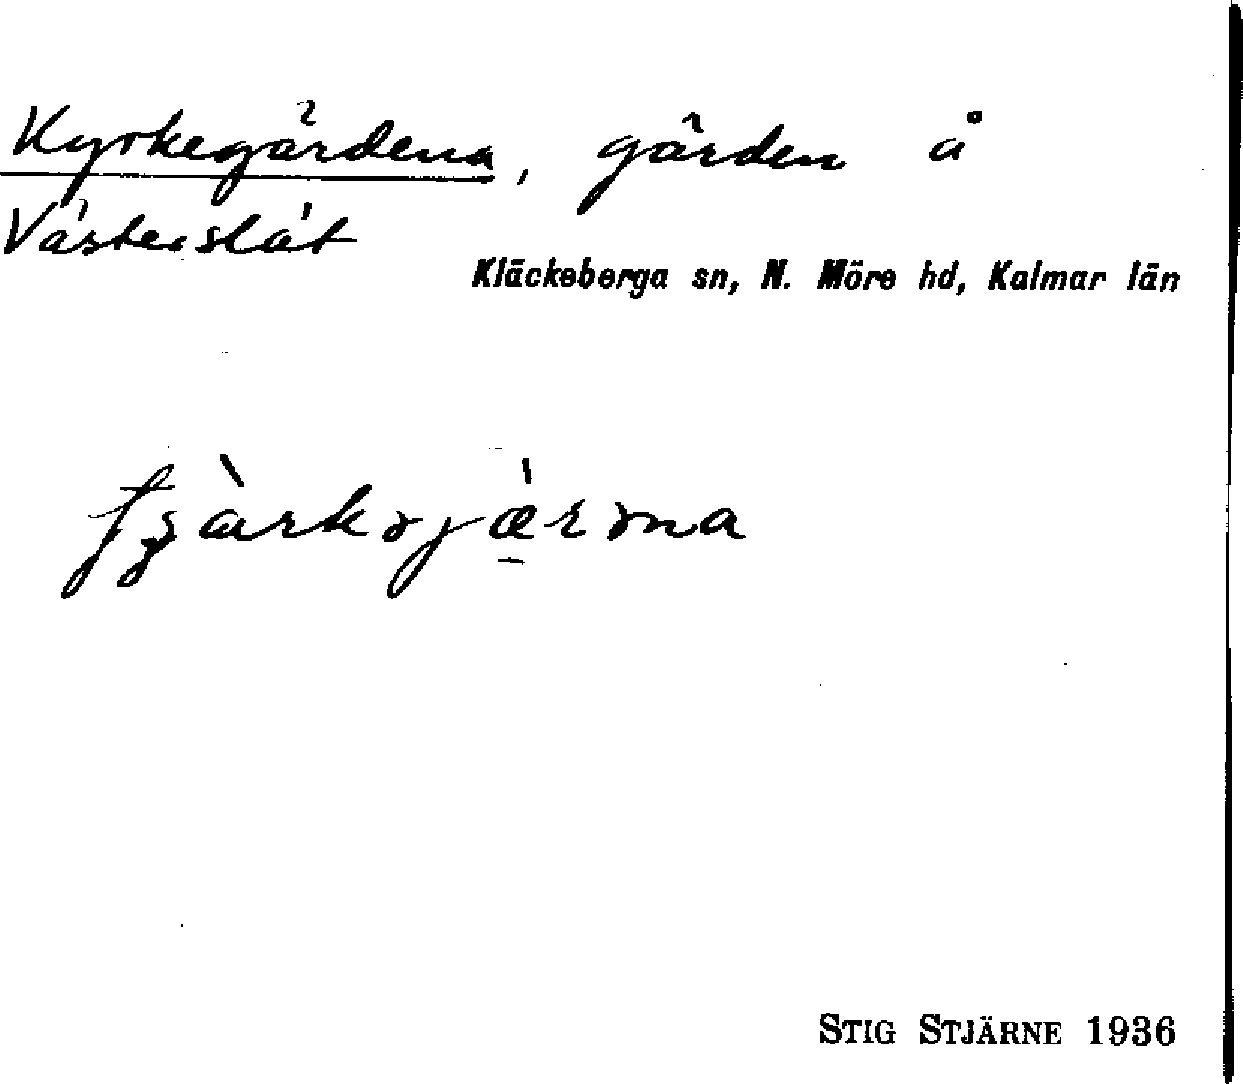 Kyrkegärdena, gärden å
Västerslät
Kläckeberga sn, N. Möre hd, Kalmar län
STIG STJÄRNE 1936